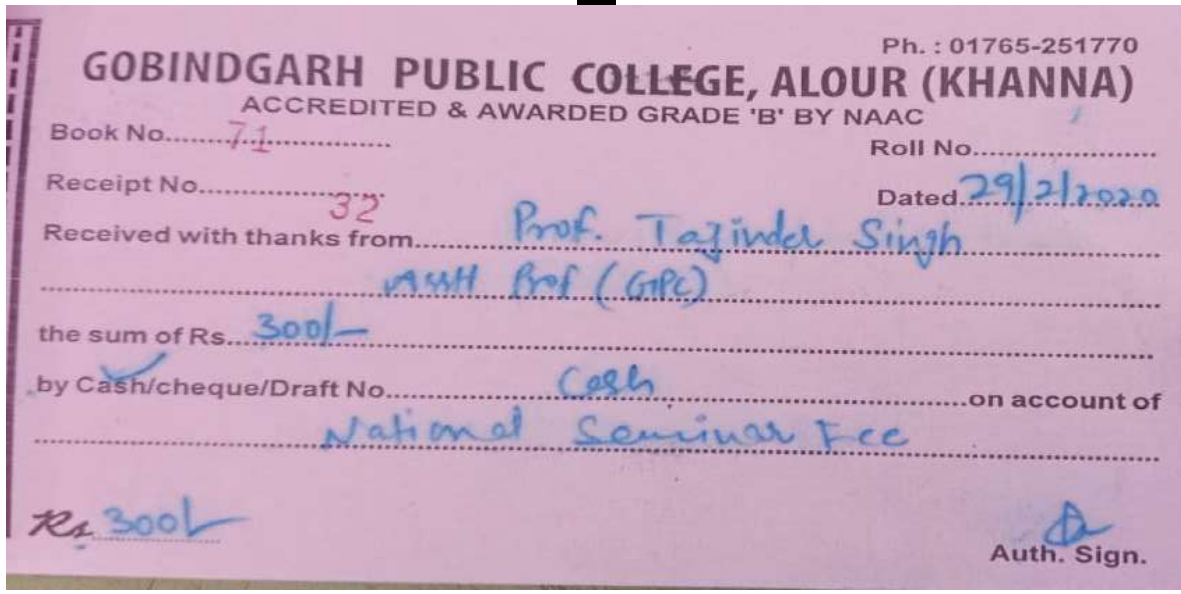 Ph. : 01765-251770
GOBINDGARH PUBLIC COLLEGE, ALOUR (KHANNA)
ACCREDITED & AWARDED GRADE 'B' BY NAAC
Book No.....71.....
Roll No.....
Receipt No.....32
Dated.....29/2/2020
Received with thanks from.....Prof. Tajinder Singh
Asstt Prof (GPC)
the sum of Rs....300/-
by Cash/cheque/Draft No.....Cash.....on account of
National Seminar Fee
Rs 300/-
Auth. Sign.